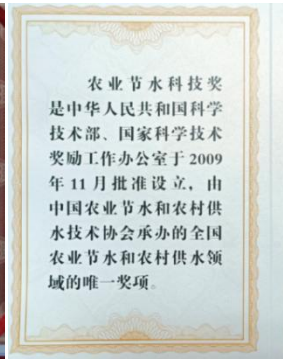 农业节水科技奖
是中华人民共和国科学
技术部、国家科学技术
奖励工作办公室于2009
年11月批准设立，由
中国农业节水和农村供
水技术协会承办的全国
农业节水和农村供水领
域的唯一奖项。